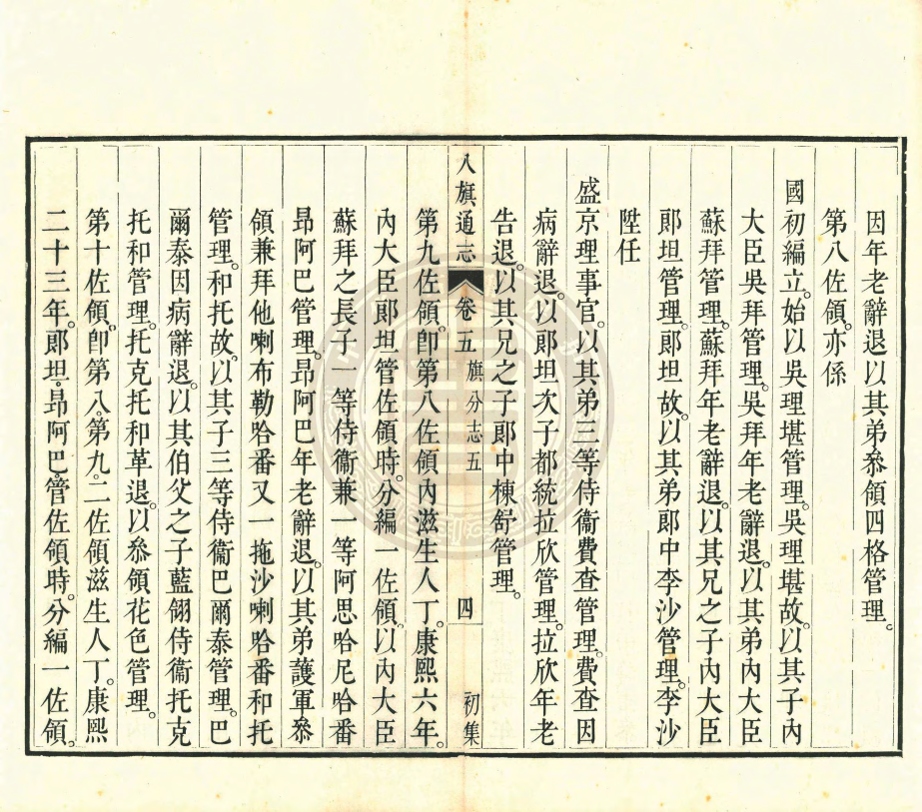 因年老辭退以其弟叅領四格管理。
第八佐領。亦係
國初編立。始以吳理堪管理。吳理堪故。以其子內
大臣吳拜管理。吳拜年老辭退。以其弟內大臣
蘇拜管理。蘇拜年老辭退。以其兄之子內大臣
郎坦管理。郎坦故。以其弟郎中李沙管理。李沙
陞任
盛京理事官。以其弟三等侍衞費查管理。費查因
病辭退。以郎坦次子都統拉欣管理。拉欣年老
告退。以其兄之子郎中棟舒管理。
八旗通志 卷五 旗分志五 四 初集
第九佐領。卽第八佐領內滋生人丁。康熙六年。
內大臣郎坦管佐領時。分編一佐領。以內大臣
蘇拜之長子一等侍衞兼一等阿思哈尼哈番
昂阿巴管理。昂阿巴年老辭退。以其弟護軍叅
領兼拜他喇布勒哈番又一拖沙喇哈番和托
管理。和托故。以其子三等侍衞巴爾泰管理。巴
爾泰因病辭退。以其伯父之子藍翎侍衞托克
托和管理。托克托和革退。以叅領花色管理。
第十佐領。卽第八。第九。二佐領滋生人丁。康熙
二十三年。郎坦。昂阿巴。管佐領時。分編一佐領。